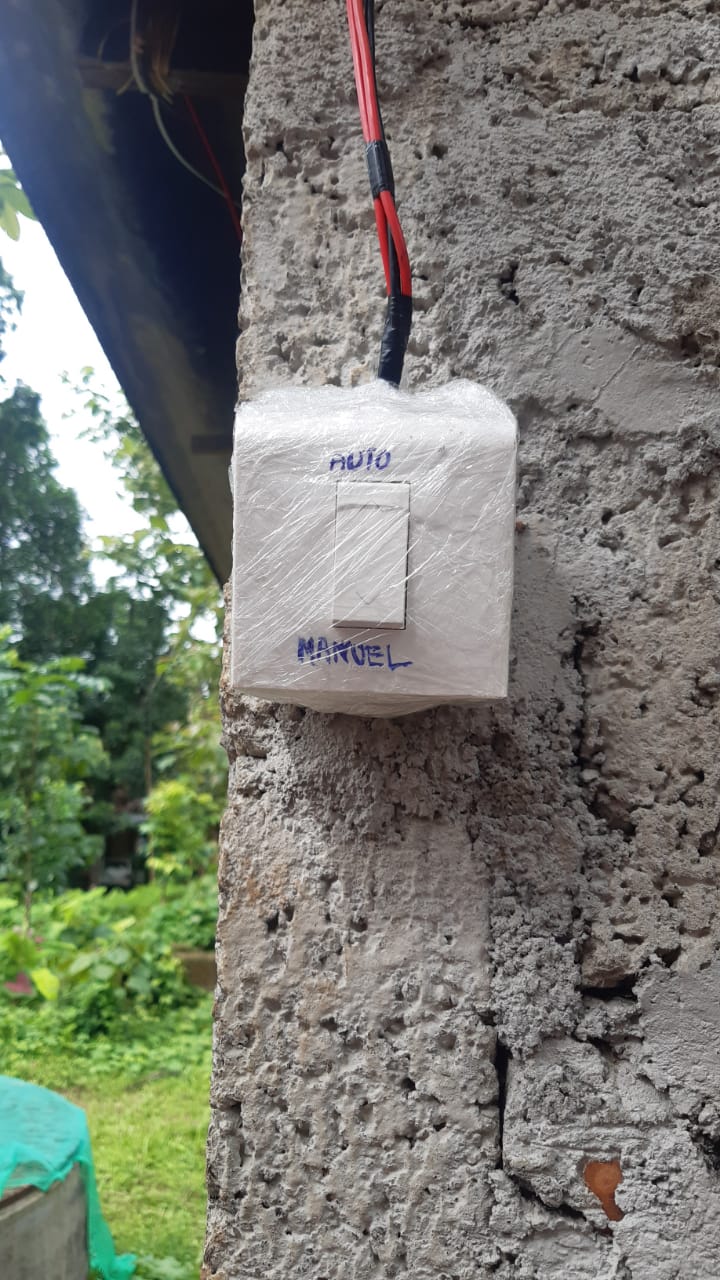 AUTO
MANUEL